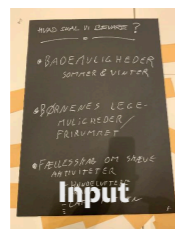 HVAD SKAL VI BEVARE?
• BADEMULIGHEDER
SOMMER & VINTER
• BØRNENES LEGE-
MULIGHEDER/
FRIRUMMET
• FÆLLESSKAB OM SKÆVE
AKTIVITETER
Input